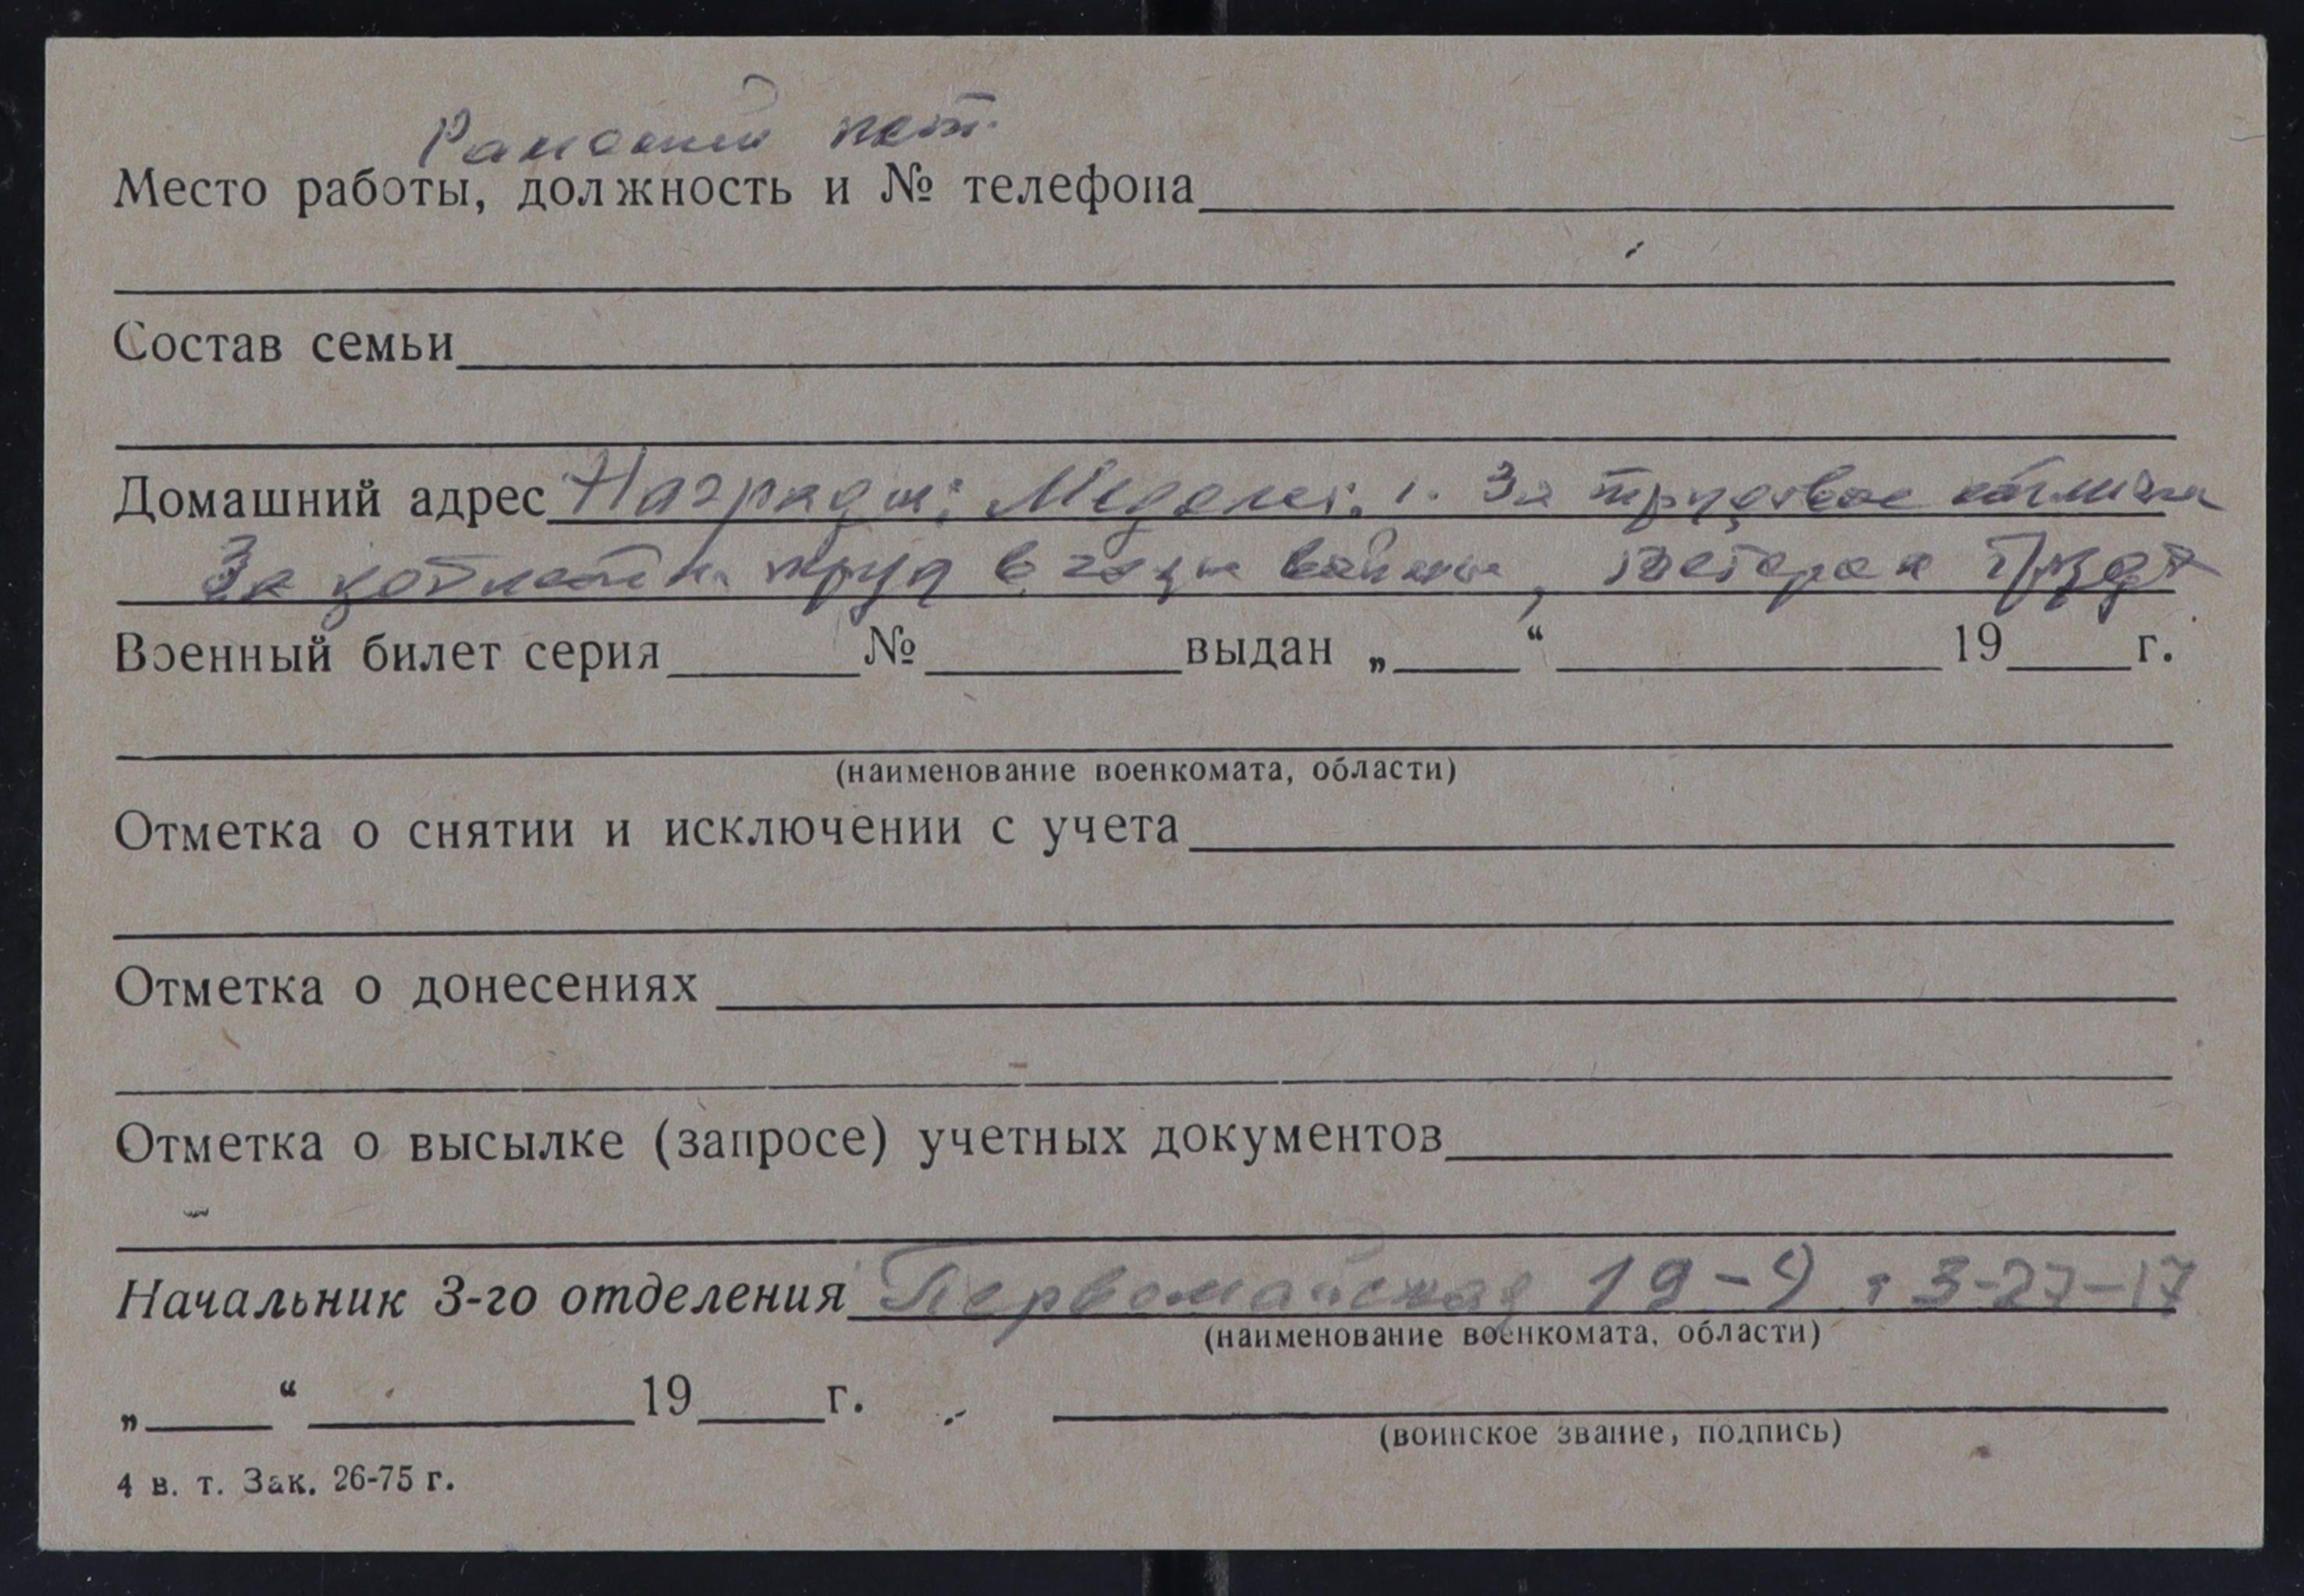 Место работы, должность и № телефона
Состав семьи
Домашний адрес Награды: Медали: 1. За трудовое отличие
За доблестн. труд в годы войны, ветеран труда
Военный билет серия № выдан „ “ 19 г.
(наименование военкомата, области)
Отметка о снятии и исключении с учета
Отметка о донесениях
Отметка о высылке (запросе) учетных документов
Начальник 3-го отделения Первомайская 19-9 т 3-27-17
(наименование военкомата, области)
„ “ 19 г.
(воинское звание, подпись)
4 в. т. Зак. 26-75 г.